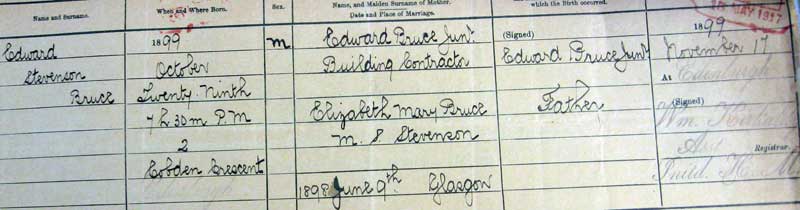 Name and Surname.
When and Where Born.
Sex.
Name, and Maiden Surname of Mother.
Date and Place of Marriage.
which the Birth occurred.
Edward
Stevenson
Bruce
1899
October
Twenty-Ninth
7h 30m P.M
2
Cobden Crescent
M
Edward Bruce Junr.
Building Contractor
Elizabeth Mary Bruce
M. S. Stevenson
1898 June 9th Glasgow
(Signed)
Edward Bruce Junr
Father
1899
November 17
At Edinburgh
(Signed)
Wm.
Registrar.
MAY 1917